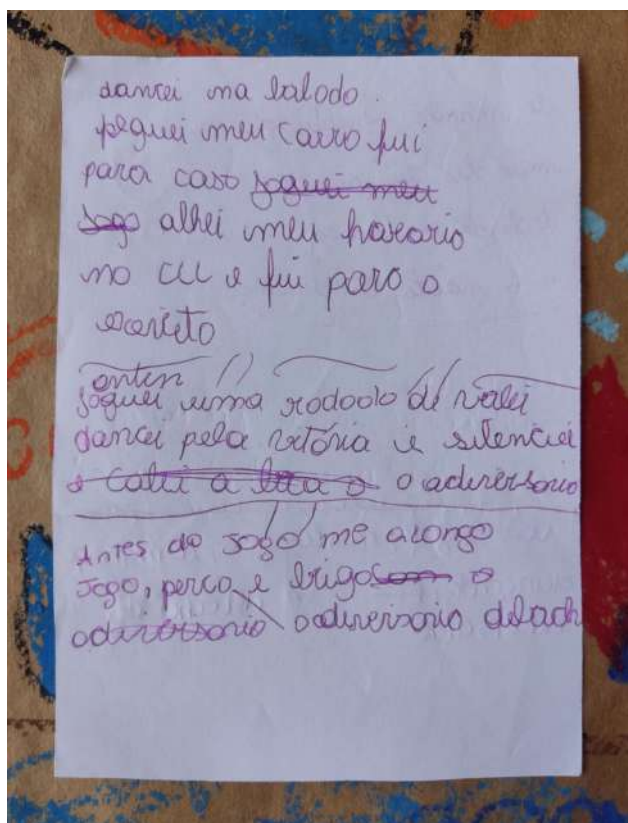 dancei na balada.
peguei meu carro fui
para casa joguei meu
jogo olhei meu horario
no CCE e fui para o
ontem
joguei uma rodada de volei
dancei pela vitória e silenciei
e calei a boca o o adversario
Antes do jogo me alongo
Jogo, perco e brigo com o
adversario o adversario debach